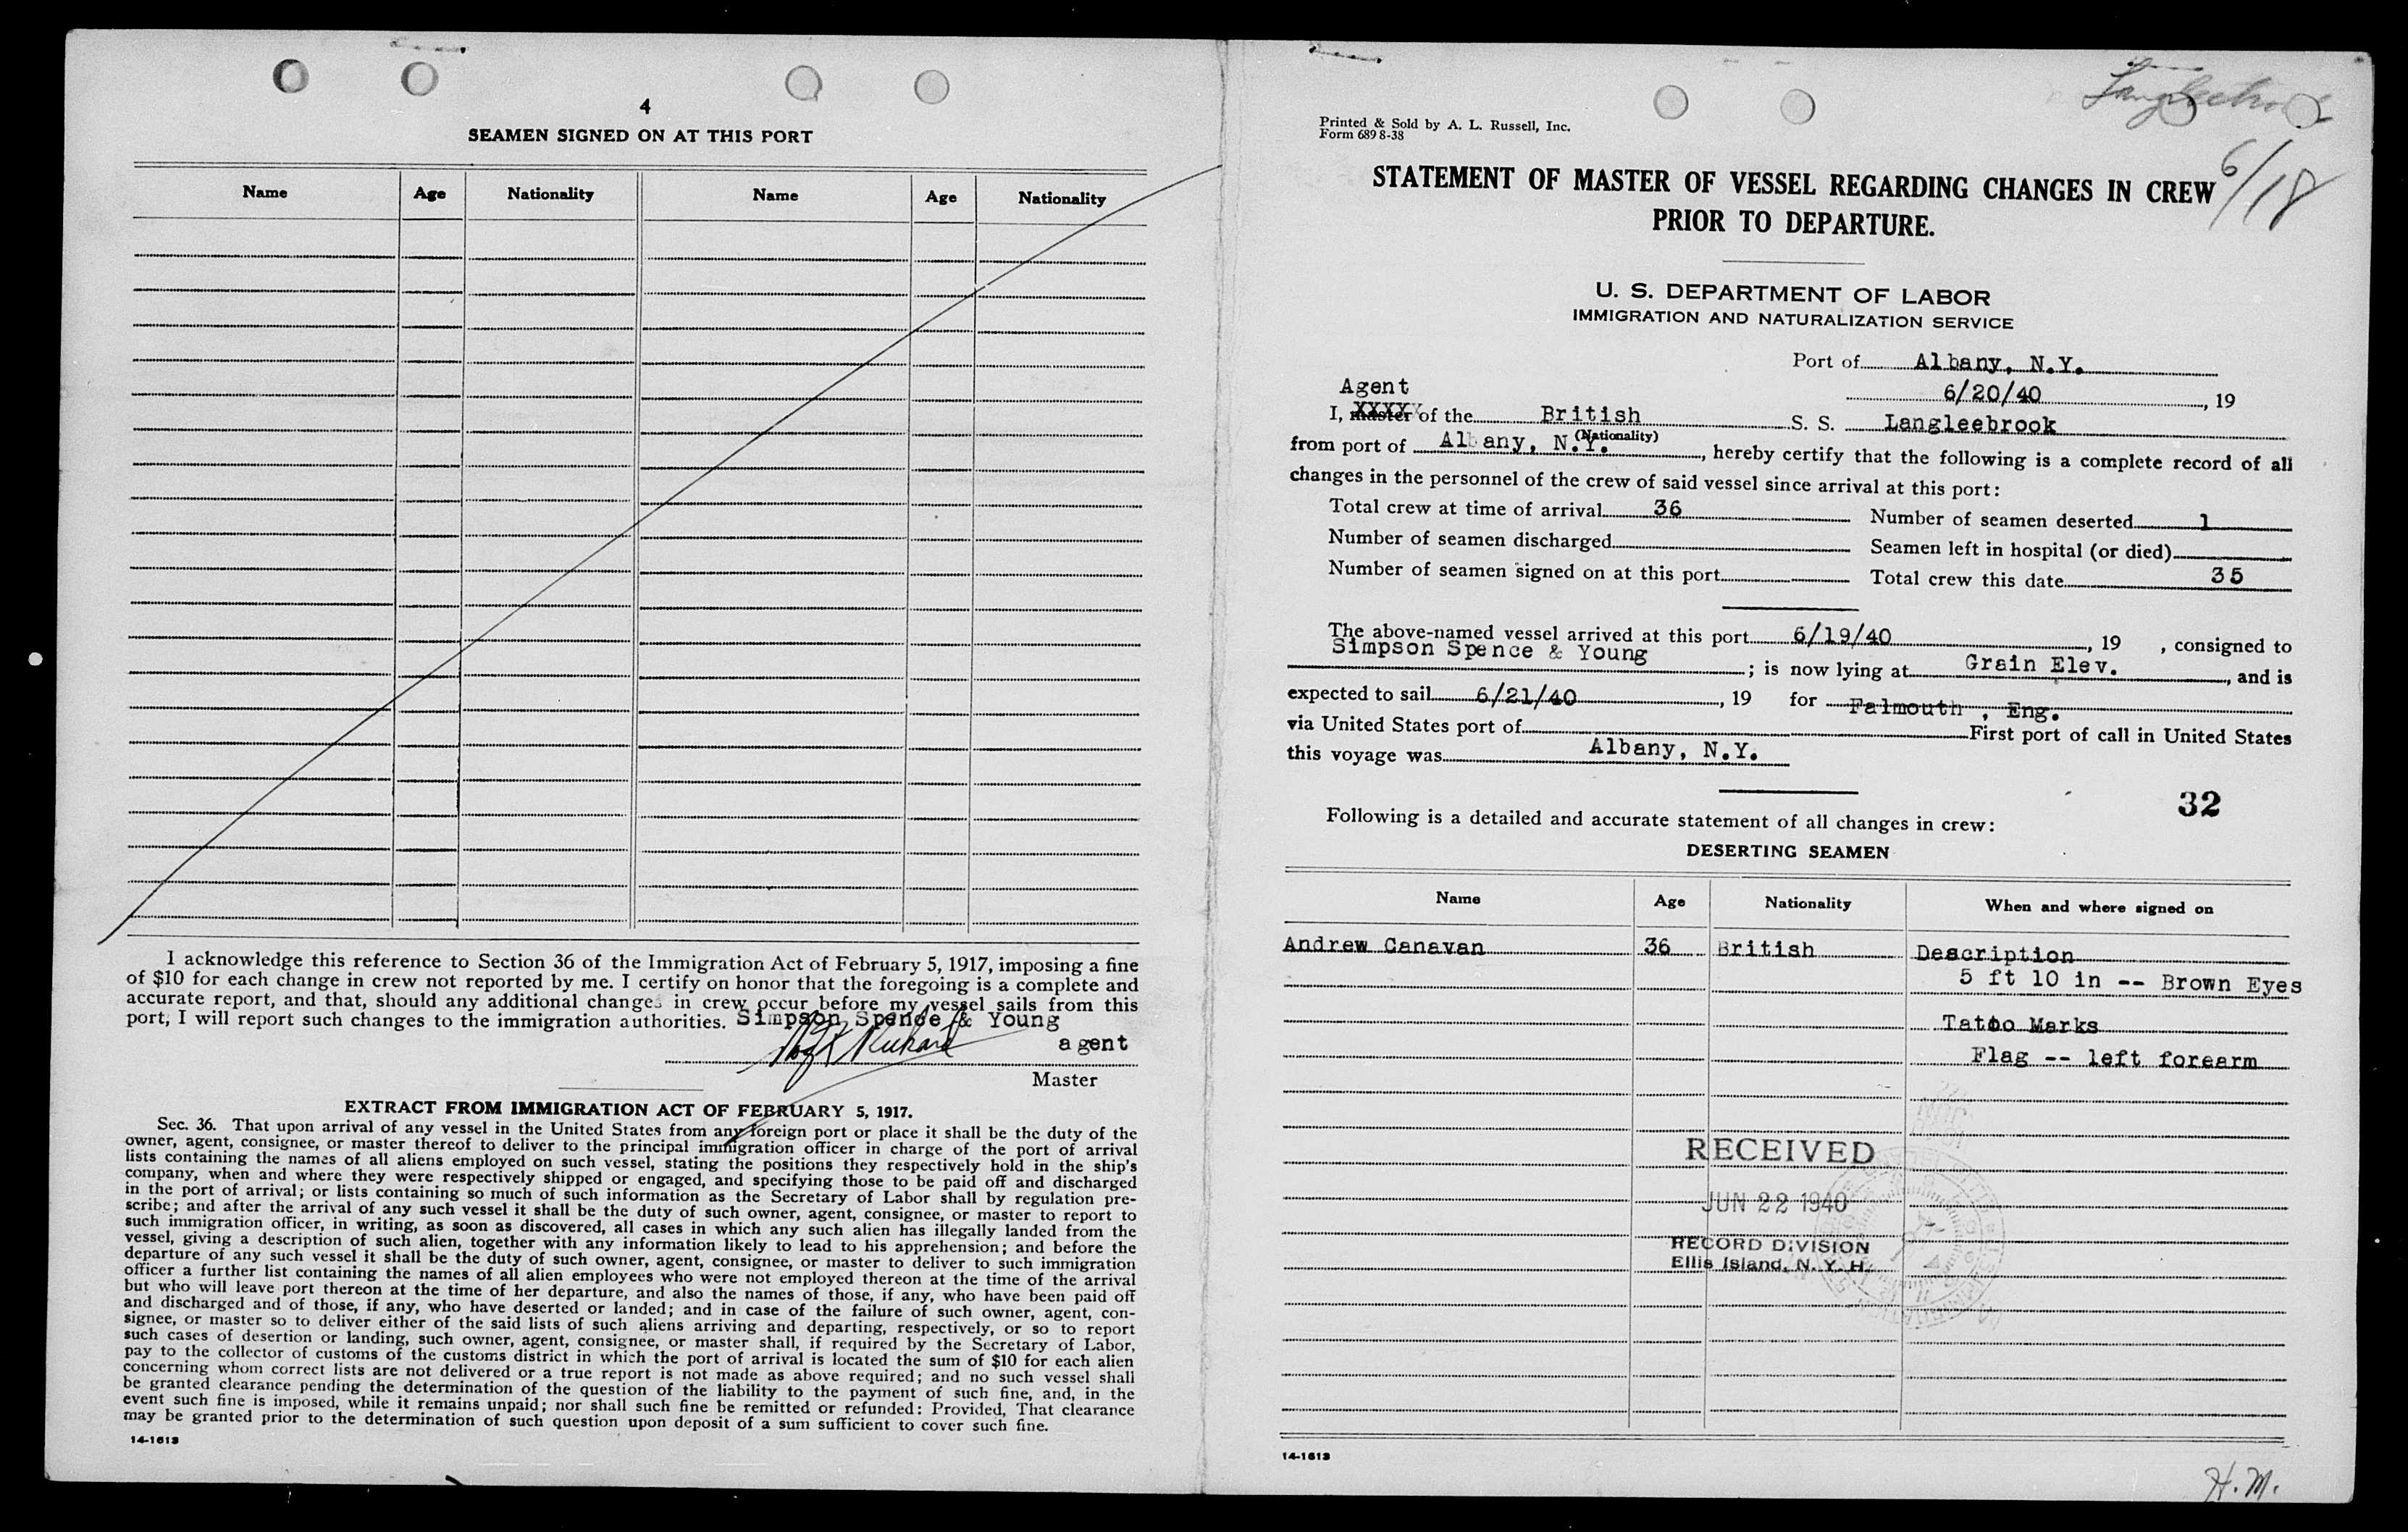 4
SEAMEN SIGNED ON AT THIS PORT
Name Age Nationality Name Age Nationality
I acknowledge this reference to Section 36 of the Immigration Act of February 5, 1917, imposing a fine
of $10 for each change in crew not reported by me. I certify on honor that the foregoing is a complete and
accurate report, and that, should any additional changes in crew occur before my vessel sails from this
port, I will report such changes to the immigration authorities. Simpson Spence & Young
agent
Master
EXTRACT FROM IMMIGRATION ACT OF FEBRUARY 5, 1917.
Sec. 36. That upon arrival of any vessel in the United States from any foreign port or place it shall be the duty of the
owner, agent, consignee, or master thereof to deliver to the principal immigration officer in charge of the port of arrival
lists containing the names of all aliens employed on such vessel, stating the positions they respectively hold in the ship's
company, when and where they were respectively shipped or engaged, and specifying those to be paid off and discharged
in the port of arrival; or lists containing so much of such information as the Secretary of Labor shall by regulation pre-
scribe; and after the arrival of any such vessel it shall be the duty of such owner, agent, consignee, or master to report to
such immigration officer, in writing, as soon as discovered, all cases in which any such alien has illegally landed from the
vessel, giving a description of such alien, together with any information likely to lead to his apprehension; and before the
departure of any such vessel it shall be the duty of such owner, agent, consignee, or master to deliver to such immigration
officer a further list containing the names of all alien employees who were not employed thereon at the time of the arrival
but who will leave port thereon at the time of her departure, and also the names of those, if any, who have been paid off
and discharged and of those, if any, who have deserted or landed; and in case of the failure of such owner, agent, con-
signee, or master so to deliver either of the said lists of such aliens arriving and departing, respectively, or so to report
such cases of desertion or landing, such owner, agent, consignee, or master shall, if required by the Secretary of Labor,
pay to the collector of customs of the customs district in which the port of arrival is located the sum of $10 for each alien
concerning whom correct lists are not delivered or a true report is not made as above required; and no such vessel shall
be granted clearance pending the determination of the question of the liability to the payment of such fine, and, in the
event such fine is imposed, while it remains unpaid; nor shall such fine be remitted or refunded: Provided, That clearance
may be granted prior to the determination of such question upon deposit of a sum sufficient to cover such fine.
14-1613
Langleebrook
6/18
Printed & Sold by A. L. Russell, Inc.
Form 689 8-38
STATEMENT OF MASTER OF VESSEL REGARDING CHANGES IN CREW
PRIOR TO DEPARTURE.
U. S. DEPARTMENT OF LABOR
IMMIGRATION AND NATURALIZATION SERVICE
Port of Albany, N.Y.
6/20/40, 19
Agent
I, master of the British S. S. Langleebrook
(Nationality)
from port of Albany, N.Y., hereby certify that the following is a complete record of all
changes in the personnel of the crew of said vessel since arrival at this port:
Total crew at time of arrival 36 Number of seamen deserted 1
Number of seamen discharged Seamen left in hospital (or died)
Number of seamen signed on at this port Total crew this date 35
The above-named vessel arrived at this port 6/19/40, 19 , consigned to
Simpson Spence & Young ; is now lying at Grain Elev., and is
expected to sail 6/21/40, 19 for Falmouth , Eng.
via United States port of First port of call in United States
this voyage was Albany, N.Y.
32
Following is a detailed and accurate statement of all changes in crew:
DESERTING SEAMEN
Name Age Nationality When and where signed on
Andrew Canavan 36 British Description
5 ft 10 in -- Brown Eyes
Tatoo Marks
Flag -- left forearm
RECEIVED
JUN 22 1940
RECORD DIVISION
Ellis Island, N. Y. H.
14-1613
H.M.